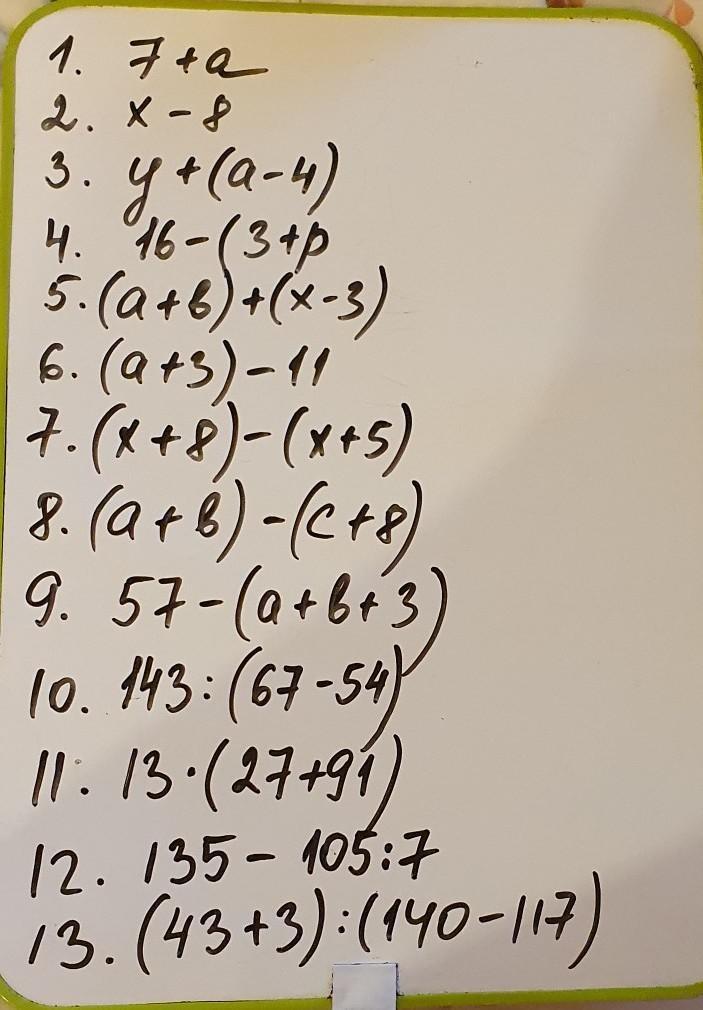 1. 7+a
2. x-8
3. y+(a-4)
4. 16-(3+p
5. (a+b)+(x-3)
6. (a+3)-11
7. (x+8)-(x+5)
8. (a+b)-(c+8)
9. 57-(a+b+3)
10. 143:(67-54)
11. 13·(27+91)
12. 135-105:7
13. (43+3):(140-117)